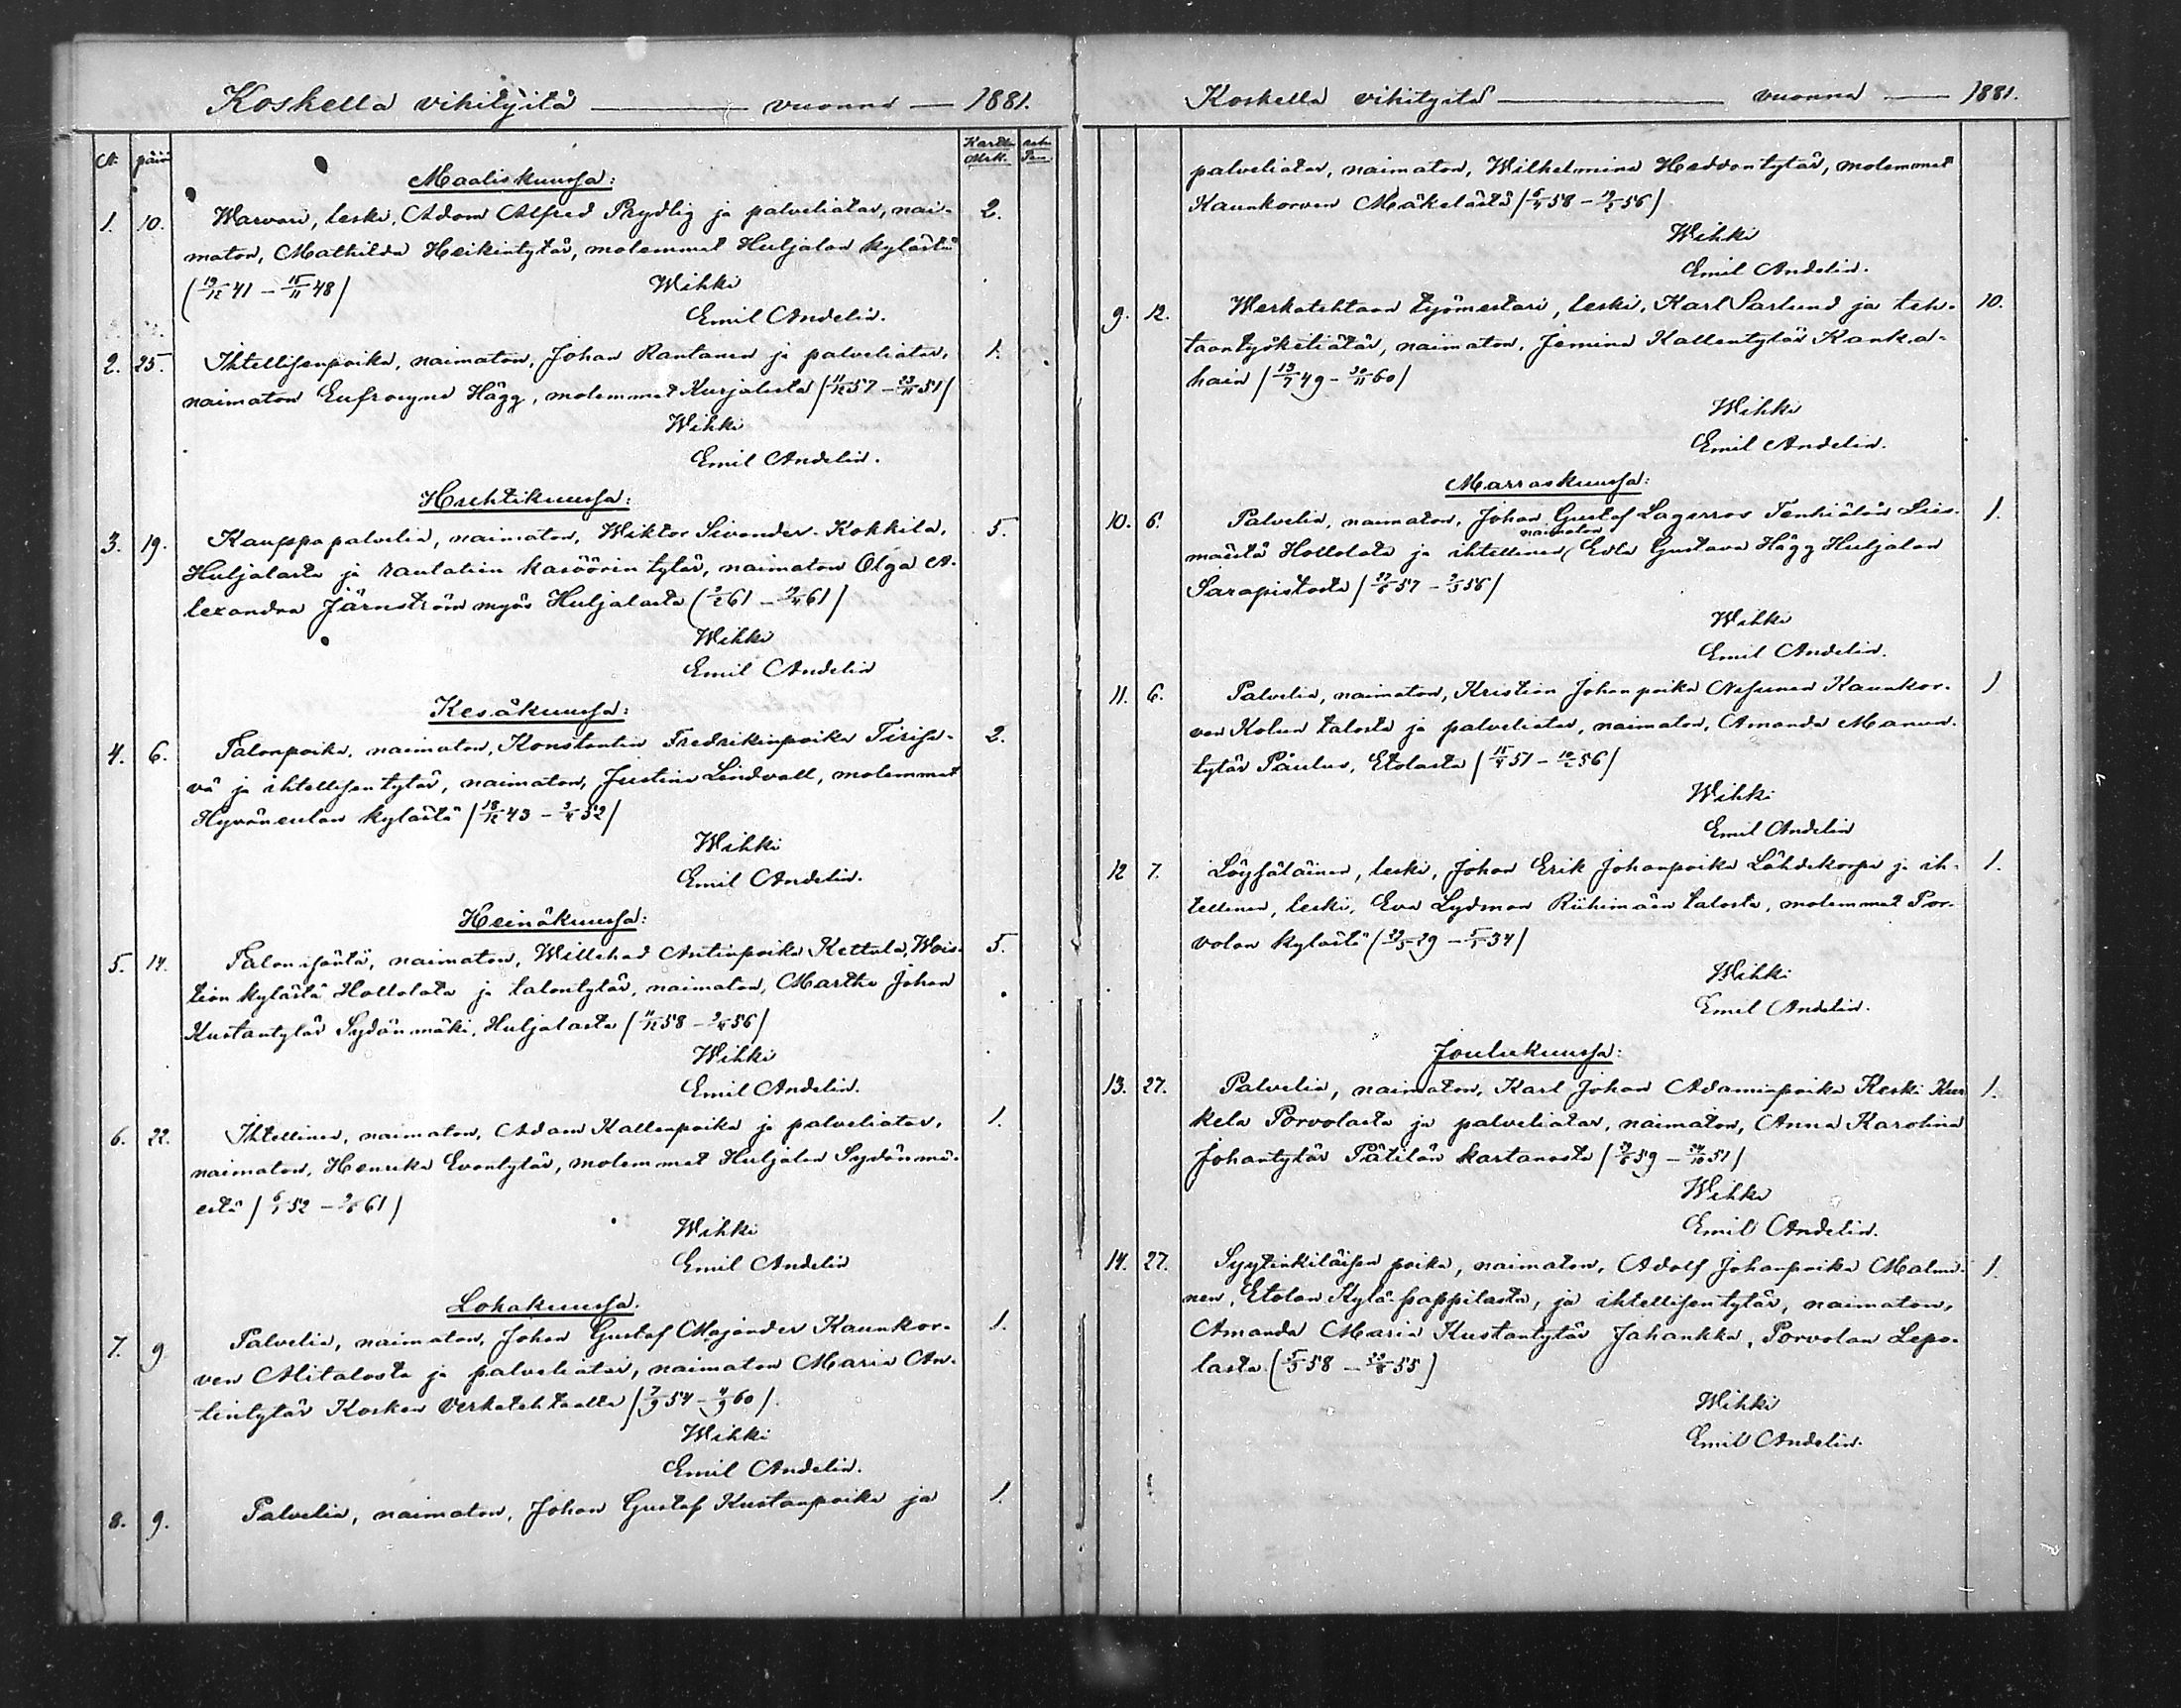 Koskella vihityitä — vuonna — 1881.
N. päivä
Mrk. Pen.
Maaliskuussa:
1. 10. Warvari, leski, Adam Alfred Prydlig ja palveliatar, nai- 2.
maton, Mathilda Heikintytär, molemmat Huljalan kylästä
(19/12 41 – 15/11 48)
Wihki
Emil Andelin.
2. 25. Ihtellisenpoika, naimaton, Johan Rantanen ja palveliatar, 1.
naimaton Eufrosyne Hägg, molemmat Kurjalasta (11/12 57 – 23/11 51)
Wihki
Emil Andelin.
Huhtikuussa:
3. 19. Kauppapalvelia, naimaton, Wiktor Sivander Kokkila, 5.
Huljalasta ja rautatien kasöörin tytär, naimaton Olga A-
lexandra Järnström myös Huljalasta (2/2 61 – 19/4 61)
Wihki
Emil Andelin
Kesäkuussa:
4. 6. Talonpoika, naimaton, Konstantin Fredrikinpoika Tirise- 2.
vä ja ihtellisentytär, naimaton, Justina Lindvall, molemmat
Hyväneulan kylästä (18/12 43 – 3/4 52)
Wihki
Emil Andelin.
Heinäkuussa:
5. 14. Talon isäntä, naimaton, Willehad Antinpoika Kettula, Wois- 5.
tion kylästä Hollolata ja talontytär, naimaton, Martha Johan
Kustantytär Sydänmäki, Huljalasta (11/12 58 – 9/4 56)
Wihki
Emil Andelin.
6. 22. Ihtellinen, naimaton, Adam Kallenpoika ja palveliatar, 1.
naimaton, Henrika Evantytär, molemmat Huljalan Sydänmä-
estä (6/1 52 – 9/6 61)
Wihki
Emil Andelin
Lokakuussa.
7. 9 Palvelia, naimaton, Johan Gustaf Majander Kaunkor- 1.
ven Alitalosta ja palveliatar, naimaton Maria An-
tintytär Kosken Verkatehtaalta (7/9 54 – 4/9 60).
Wihki
Emil Andelin.
8. 9. Palvelia, naimaton, Johan Gustaf Kustaanpoika ja 1.
Koskella vihityitä — vuonna — 1881.
palveliatar, naimaton, Wilhelmina Heddantytär, molemmat
Kaunkorven Mäkelästä (6/4 58 – 19/5 56)
Wihki
Emil Andelin.
9. 12. Werkatehtaan työmestari, leski, Karl Sarlund ja teh- 10.
taantyöketiätär, naimaton, Jemina Kallentytär Kanka-
hain (13/7 49 – 30/11 60)
Wihki
Emil Andelin.
Marraskuussa:
10. 6. Palvelia, naimaton, Johan Gustaf Lagerros Tenhiälän Lies- 1.
naimaton
mäeltä Hollolata ja ihtellinen Evla Gustava Hägg Huljalan
Sarapistosta (27/6 57 – 3/3 56)
Wihki
Emil Andelin.
11. 6. Palvelia, naimaton, Kristian Johanpoika Kaunkor- 1
ven Kolun talosta ja palveliatar, naimaton, Amanda Manun-
tytär Paulus, Etolasta (15/4 57 – 10/2 56)
Wihki
Emil Andelin
12 7. Löysäläinen, leski, Johan Erik Johanpoika Lähdekorpi ja ih- 1.
tellinen, leski, Eva Lydman Riihimäen talosta, molemmat Por-
volan kylästä (23/5 29 – 5/1 34)
Wihki
Emil Andelin.
Joulukuussa:
13. 27. Palvelia, naimaton, Karl Johan Adaminpoika Keski Kur 1.
kela Porvolasta ja palveliatar, naimaton, Anna Karolina
Johantytär Pätilän kartanosta (29/6 59 – 24/10 57)
Wihki
Emil Andelin.
14. 27. Syytinkiläisen poika, naimaton, Adolf Johanpoika Malmi- 1.
nen, Etolan Kylä-pappilasta, ja ihtellisentytär, naimaton,
Amanda Maria Kustantytär Jahankka, Porvolan Lepo-
lasta (5/3 58 – 23/8 55)
Wihki
Emil Andelin.